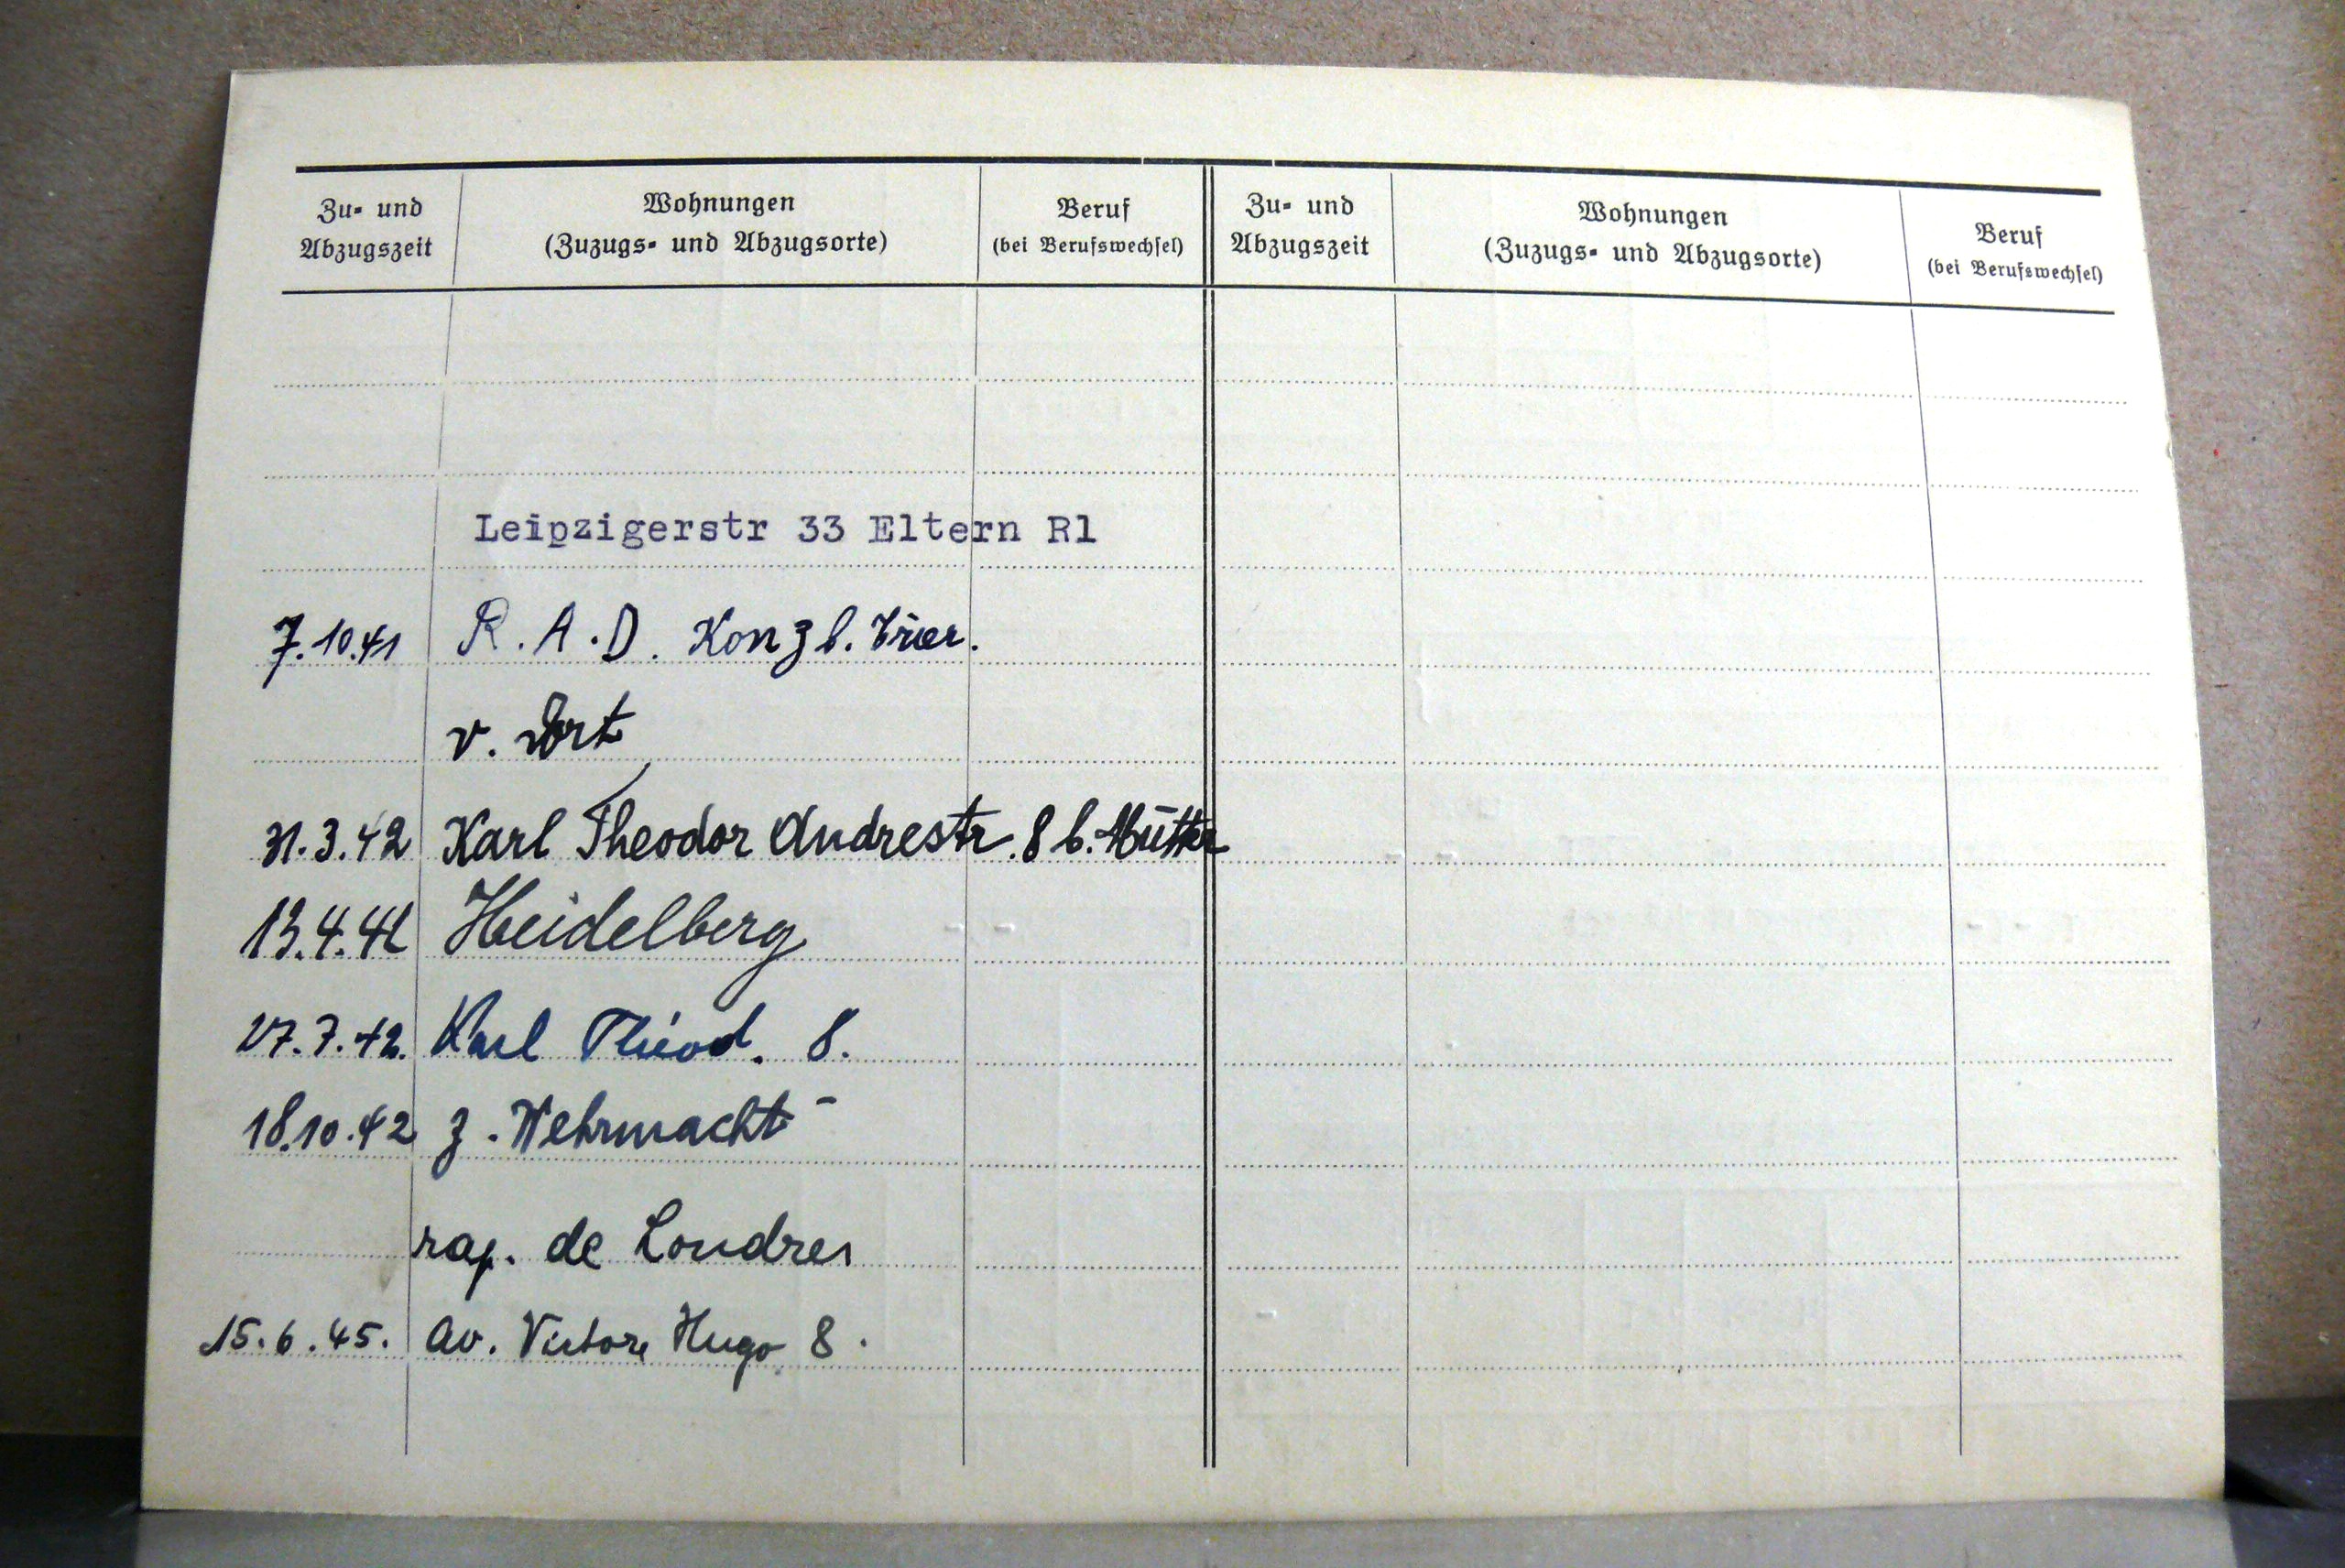 Zu- und
Abzugszeit
Wohnungen
(Zuzugs- und Abzugsorte)
Beruf
(bei Berufswechsel)
Zu- und
Abzugszeit
Wohnungen
(Zuzugs- und Abzugsorte)
Beruf
(bei Berufswechsel)
Leipzigerstr 33 Eltern Rl
7.10.41 R.A.D. Konz b. Trier.
v. dort
31.3.42 Karl Theodor Andrestr. 8 b. Mutter
13.4.42 Heidelberg
17.7.42. Karl Theod. 8.
18.10.42 z. Wehrmacht
rap. de Londres
15.6.45. Av. Victor Hugo 8.